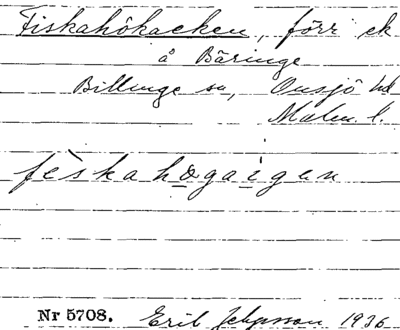 Fiskahökaeken, förr ek
å Bäringe
Billinge sn, Onsjö hd
Malm. l.
fèskahøgaígen
Nr 5708. Erik 1936